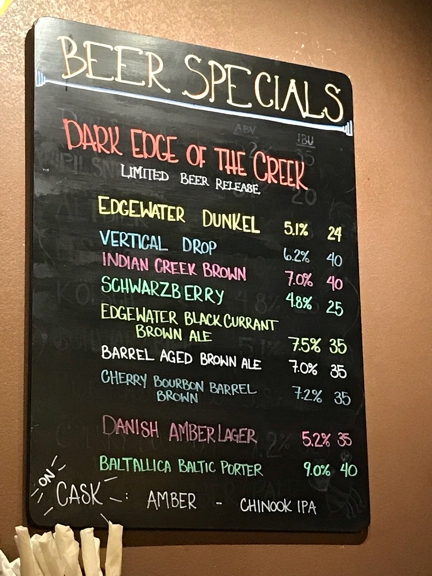 BEER SPECIALS
ABV IBU
DARK EDGE OF THE CREEK
LIMITED BEER RELEASE
EDGEWATER DUNKEL 5.1% 24
VERTICAL DROP 6.2% 40
INDIAN CREEK BROWN 7.0% 40
SCHWARZBERRY 4.8% 25
EDGEWATER BLACK CURRANT
BROWN ALE 7.5% 35
BARREL AGED BROWN ALE 7.0% 35
CHERRY BOURBON BARREL
BROWN 7.2% 35
DANISH AMBER LAGER 5.2% 35
BALTALLICA BALTIC PORTER 9.0% 40
ON
CASK -: AMBER - CHINOOK IPA